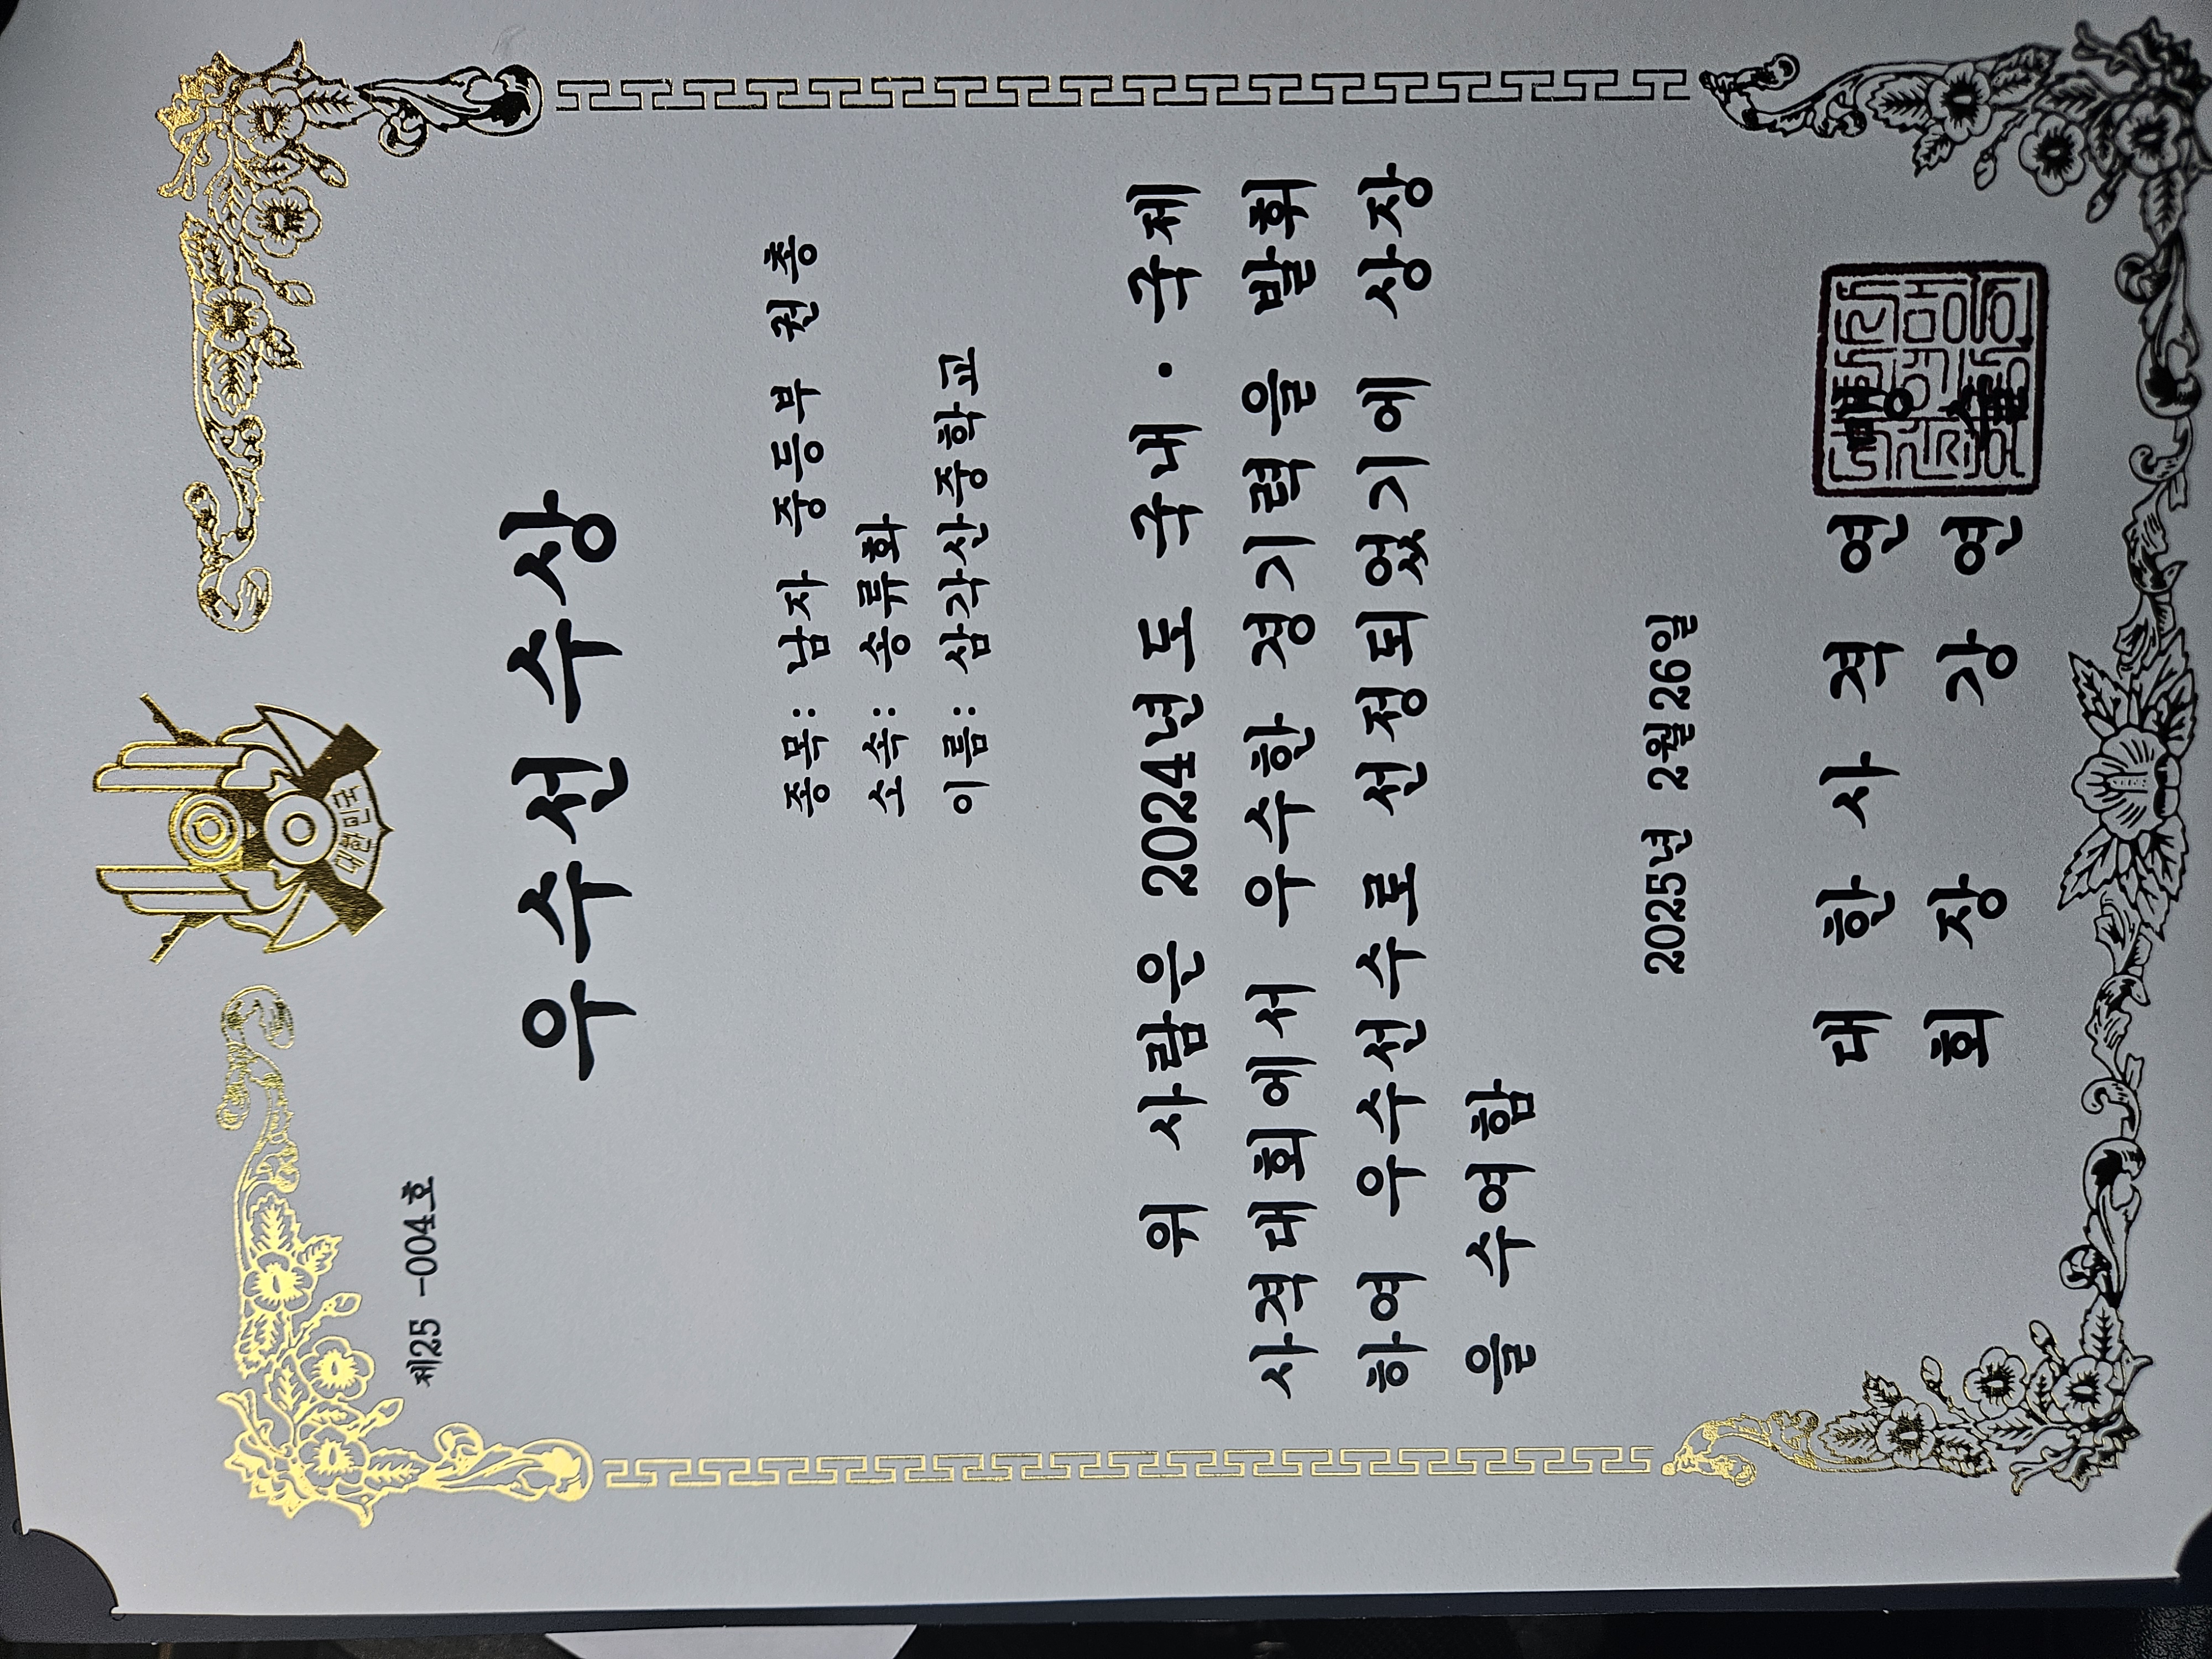 대한민국
제25 -004호
우수선수상
종목: 남자 중등부 권총
소속: 송류화
이름: 삼각산중학교
위 사람은 2024년도 국내 · 국제
사격대회에서 우수한 경기력을 발휘
하여 우수선수로 선정되었기에 상장
을 수여함
2025년 2월26일
대 한 사 격 연 맹
회 장 강 연 술